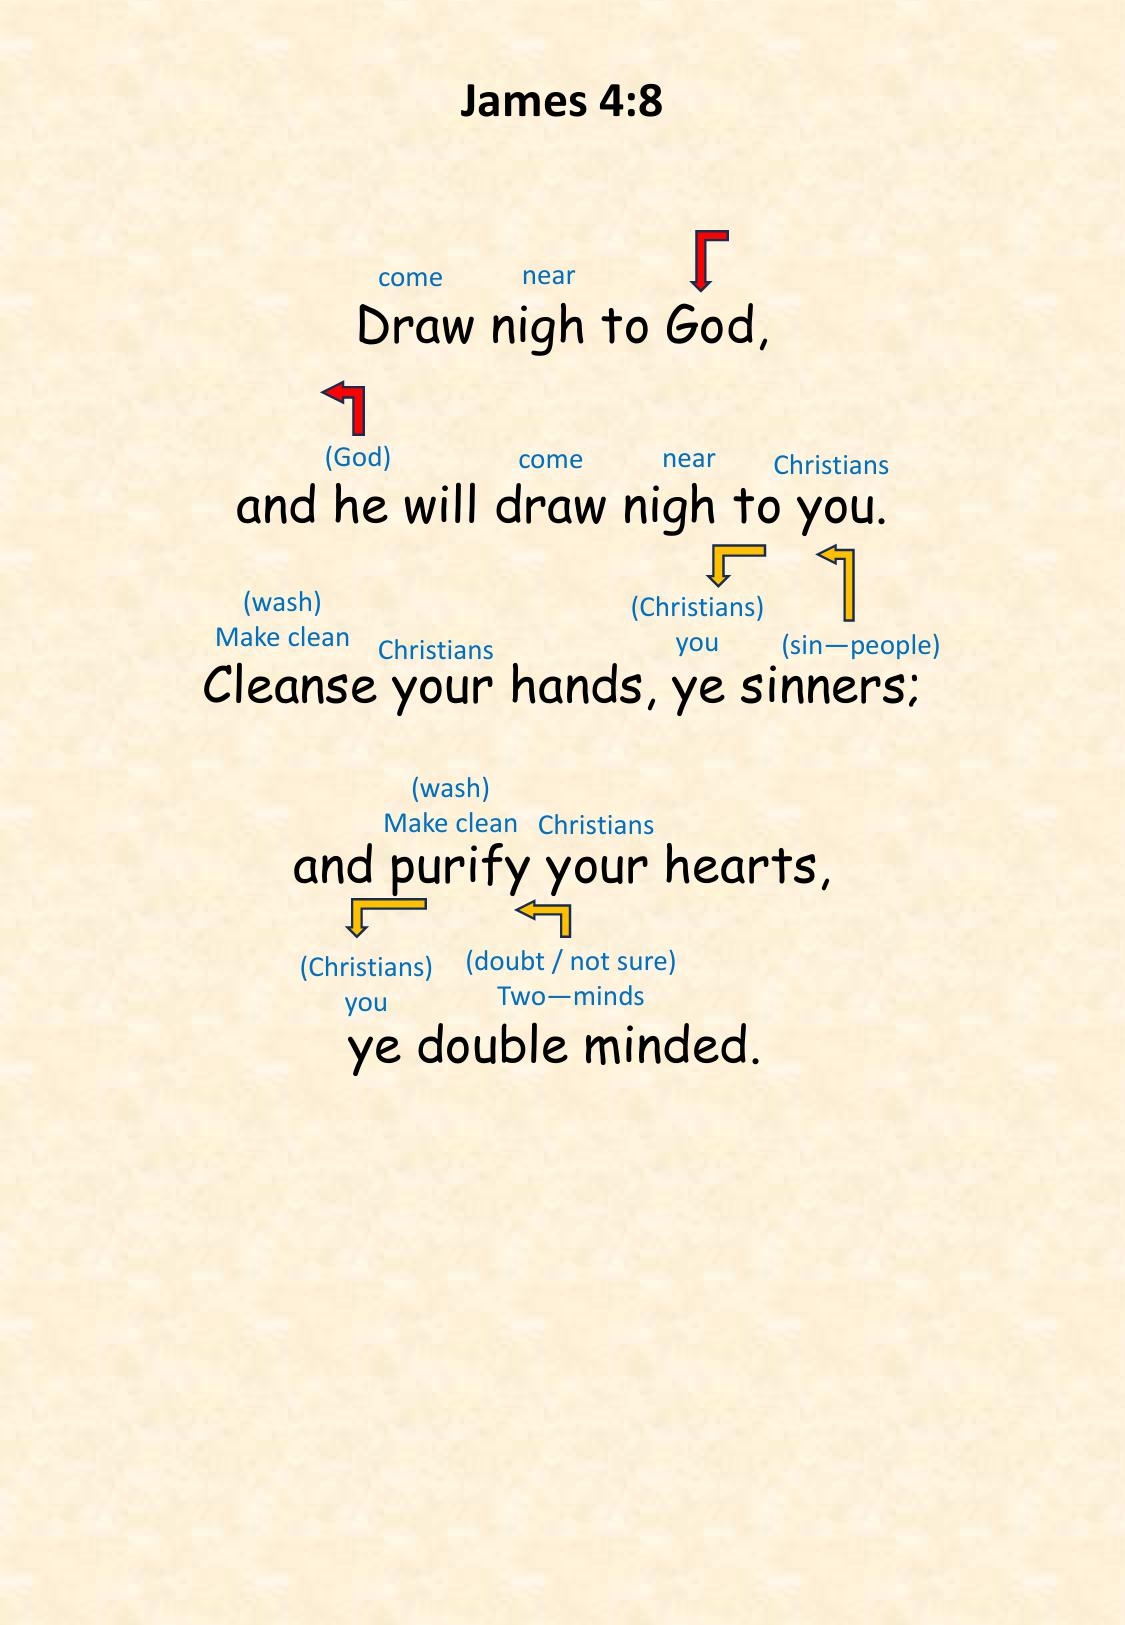 James 4:8
come near
Draw nigh to God,
(God) come near Christians
and he will draw nigh to you.
(wash) (Christians)
Make clean Christians you (sin—people)
Cleanse your hands, ye sinners;
(wash)
Make clean Christians
and purify your hearts,
(Christians) (doubt / not sure)
you Two—minds
ye double minded.